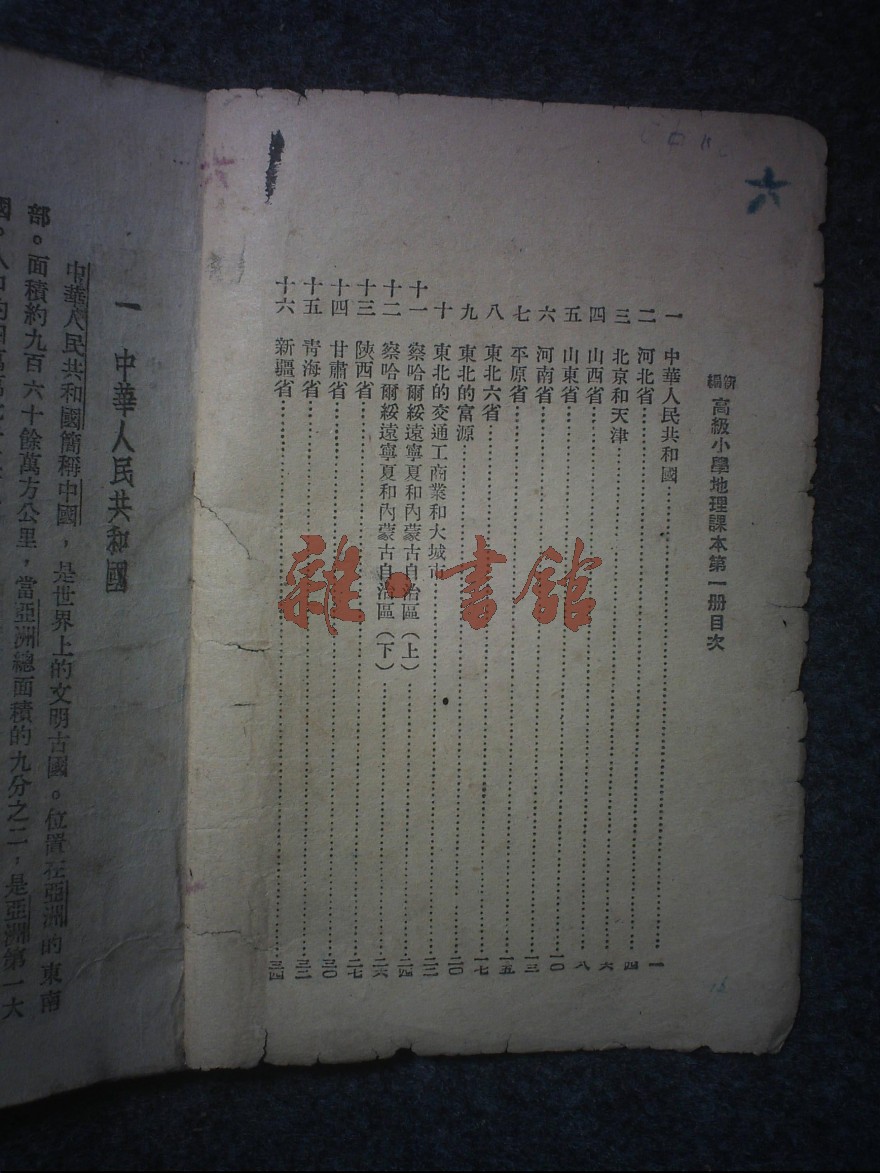 新編 高級小學地理課本第一册目次
一 中華人民共和國 一
二 河北省 四
三 北京和天津 六
四 山西省 八
五 山東省 一〇
六 河南省 一三
七 平原省 一五
八 東北六省 一七
九 東北的富源 二〇
十 東北的交通工商業和大城市 二二
十一 察哈爾綏遠寧夏和內蒙古自治區(上) 二四
十二 察哈爾綏遠寧夏和內蒙古自治區(下) 二六
十三 陝西省 二七
十四 甘肅省 三〇
十五 青海省 三二
十六 新疆省 三四
雜·書館
一 中華人民共和國
中華人民共和國簡稱中國,是世界上的文明古國。位置在亞洲的東南
部。面積約九百六十餘萬方公里,當亞洲總面積的九分之二,是亞洲第一大
國。人口約四萬萬